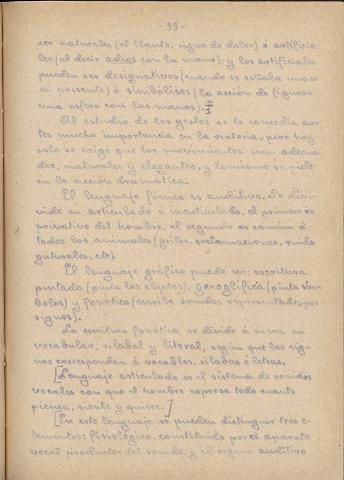 - 99 -
ser naturales (el llanto, signo de dolor) ó artificia-
les (el decir adios con la mano); y los artificiales
pueden ser designativos (cuando se señala una co-
sa presente) ó simbólicos (la acción de figurar
una esfera con las manos).
Al estudio de los gestos se le concedia an-
tes mucha importancia en la oratoria, pero hoy
solo se exige que los movimientos sean adecua-
dos, naturales y elegantes, y lo mismo se pide
en la acción dramática.
El lenguaje fónico es auditivo. Se divi-
vide en articulado é inarticulado, el primero es
privativo del hombre, el segundo es común á
todos los animales (gritos, exclamaciones, ruidos
guturales, etc)
El lenguaje gráfico puede ser: escritura
pintada (pinta los objetos), geroglífica (pinta sím-
bolos) y fonética (escribe sonidos representados por
signos).
La escritura fonética se divide á su vez en
vocabular, silabal y literal, según que los sig-
nos correspondan á vocablos, sílabas ó letras.
[Lenguaje articulado es el sistema de sonidos
vocales con que el hombre expresa todo cuanto
piensa, siente y quiere.]
[En este lenguaje se pueden distinguir tres e-
lementos: fisiológico, constituido por el aparato
vocal productor del sonido, y el órgano auditivo